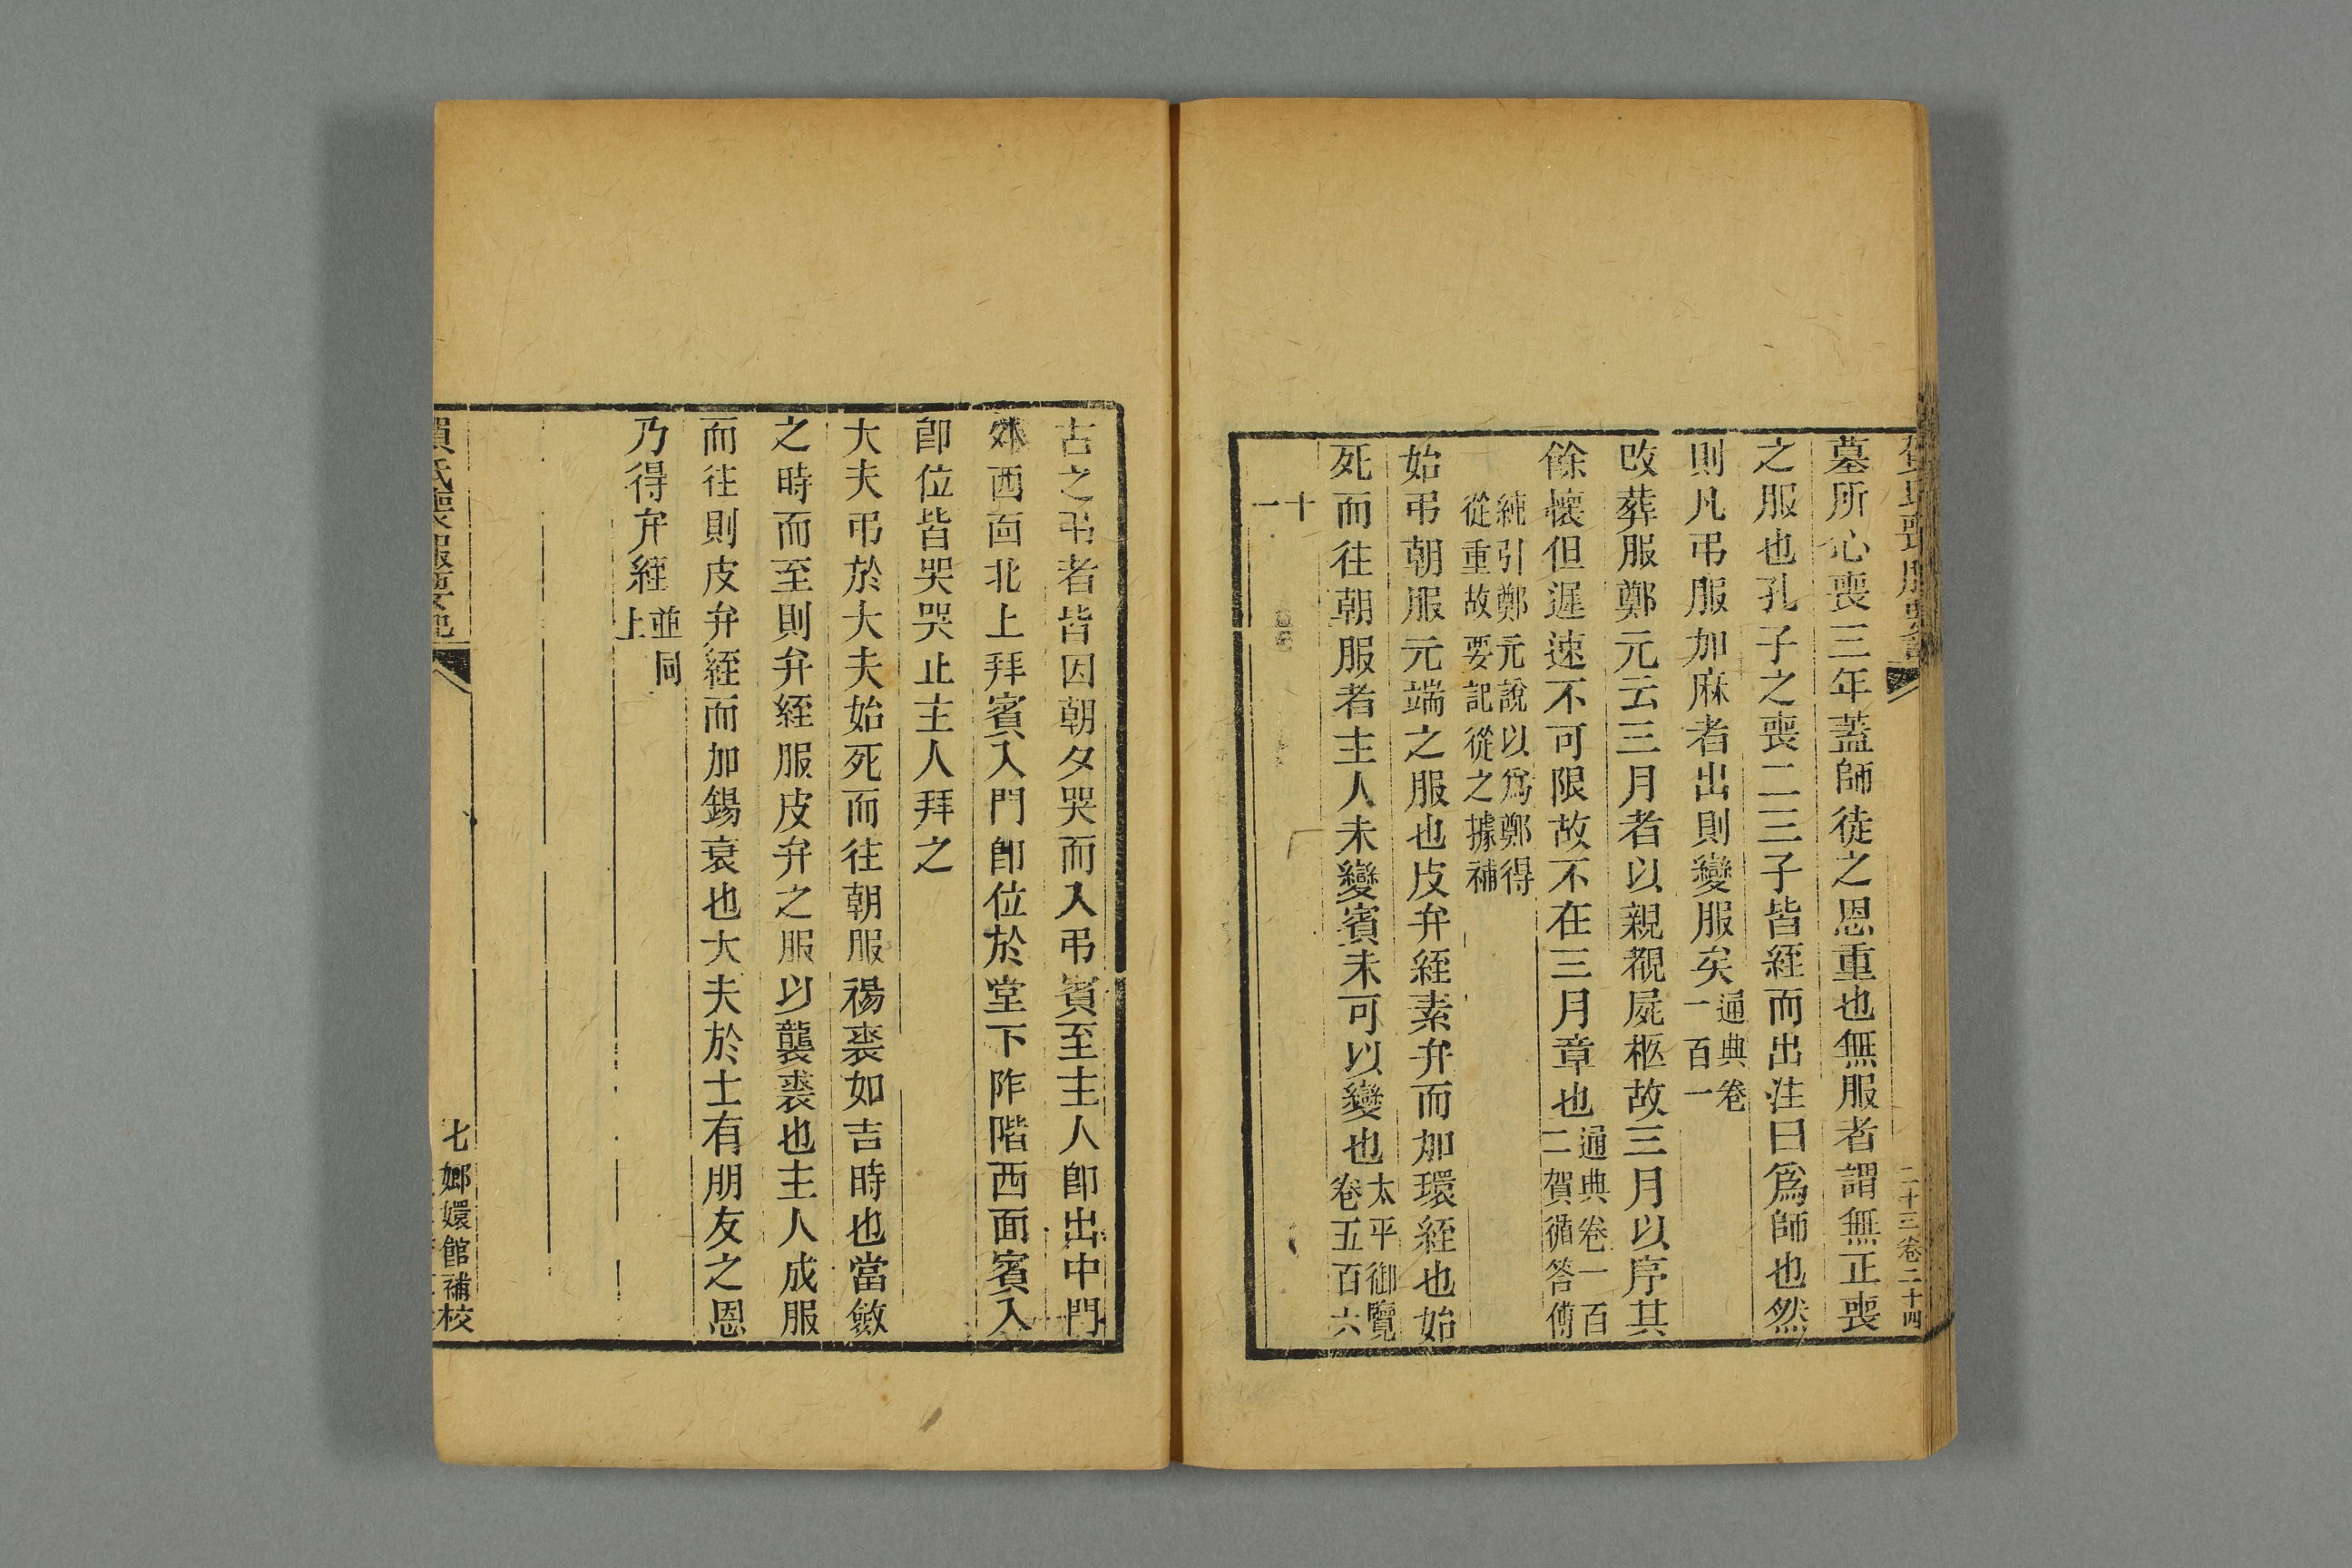 賀氏喪服要記
二十三卷二十四
墓所心喪三年蓋師徒之恩重也無服者謂無正喪
之服也孔子之喪二三子皆絰而出注曰爲師也然
則凡弔服加麻者出則變服矣通典卷一百一
改葬服鄭元云三月者以親覩屍柩故三月以序其
餘懷但遲速不可限故不在三月章也通典卷一百二賀循答傅
純引鄭元說以爲鄭得從重故要記從之據補
始弔朝服元端之服也皮弁絰素弁而加環絰也始
死而往朝服者主人未變賓未可以變也太平御覽卷五百六
十一
古之弔者皆因朝夕哭而入弔賓至主人卽出中門
外西面北上拜賓入門卽位於堂下阼階西面賓入
卽位皆哭哭止主人拜之
大夫弔於大夫始死而往朝服裼裘如吉時也當斂
之時而至則弁絰服皮弁之服以襲裘也主人成服
而往則皮弁絰而加錫衰也大夫於士有朋友之恩
乃得弁絰並同上
賀氏喪服要記
七
嫏嬛館補校